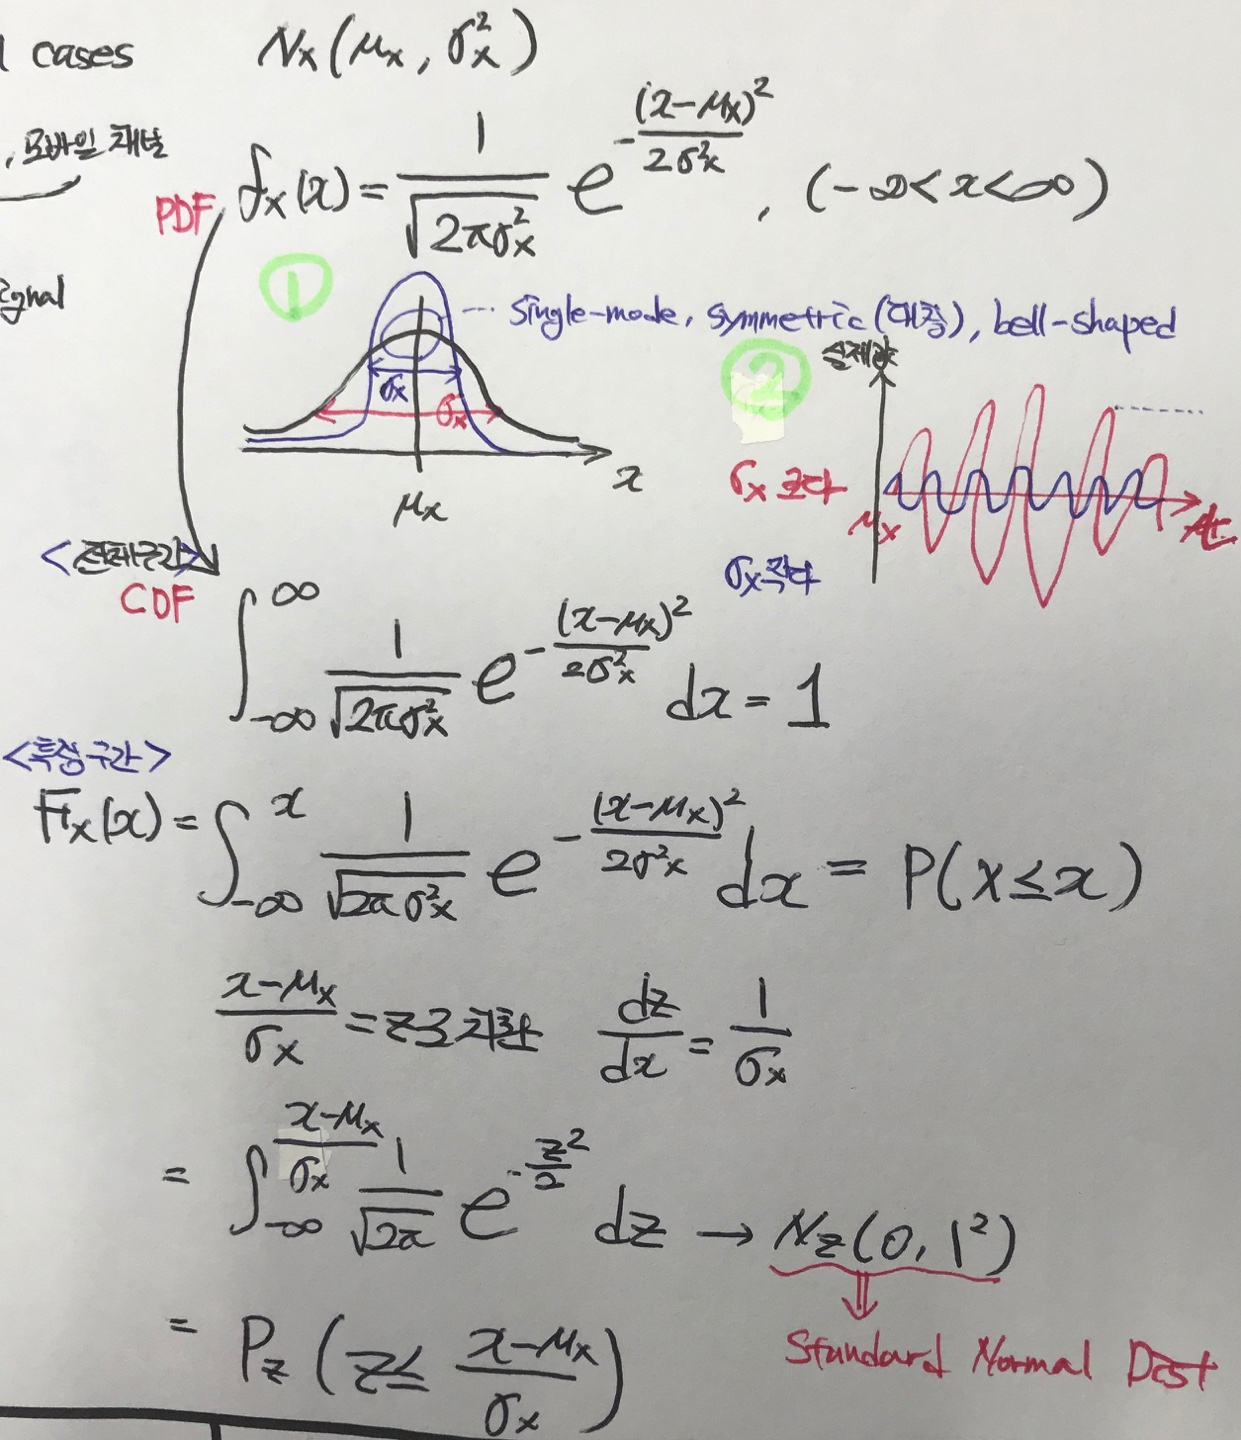 cases N_X(μ_X, σ_X^2)
, 모바일 채널
PDF f_X(x) = \frac{1}{\sqrt{2πσ_X^2}} e^{-\frac{(x-μ_X)^2}{2σ_X^2}}, (-∞<x<∞)
① single-mode, symmetric(대칭), bell-shaped
② 실제량
σ_X
σ_X
x
μ_X
σ_X 크다
μ_X
σ_X 작다
<전체구간>
CDF
\int_{-∞}^{∞} \frac{1}{\sqrt{2πσ_X^2}} e^{-\frac{(x-μ_X)^2}{2σ_X^2}} dx = 1
<특정구간>
F_X(x) = \int_{-∞}^{x} \frac{1}{\sqrt{2πσ_X^2}} e^{-\frac{(x-μ_X)^2}{2σ_X^2}} dx = P(X≤x)
\frac{x-μ_X}{σ_X} = z로 치환 \frac{dz}{dx} = \frac{1}{σ_X}
= \int_{-∞}^{\frac{x-μ_X}{σ_X}} \frac{1}{\sqrt{2π}} e^{-\frac{z^2}{2}} dz → N_Z(0, 1^2)
= P_Z(Z≤\frac{x-μ_X}{σ_X})
Standard Normal Dist